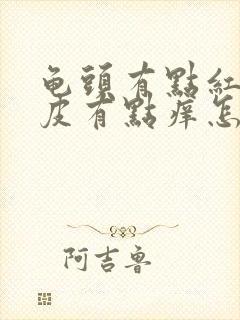 龟頭有點紅
皮有點痒怎
阿吉鲁